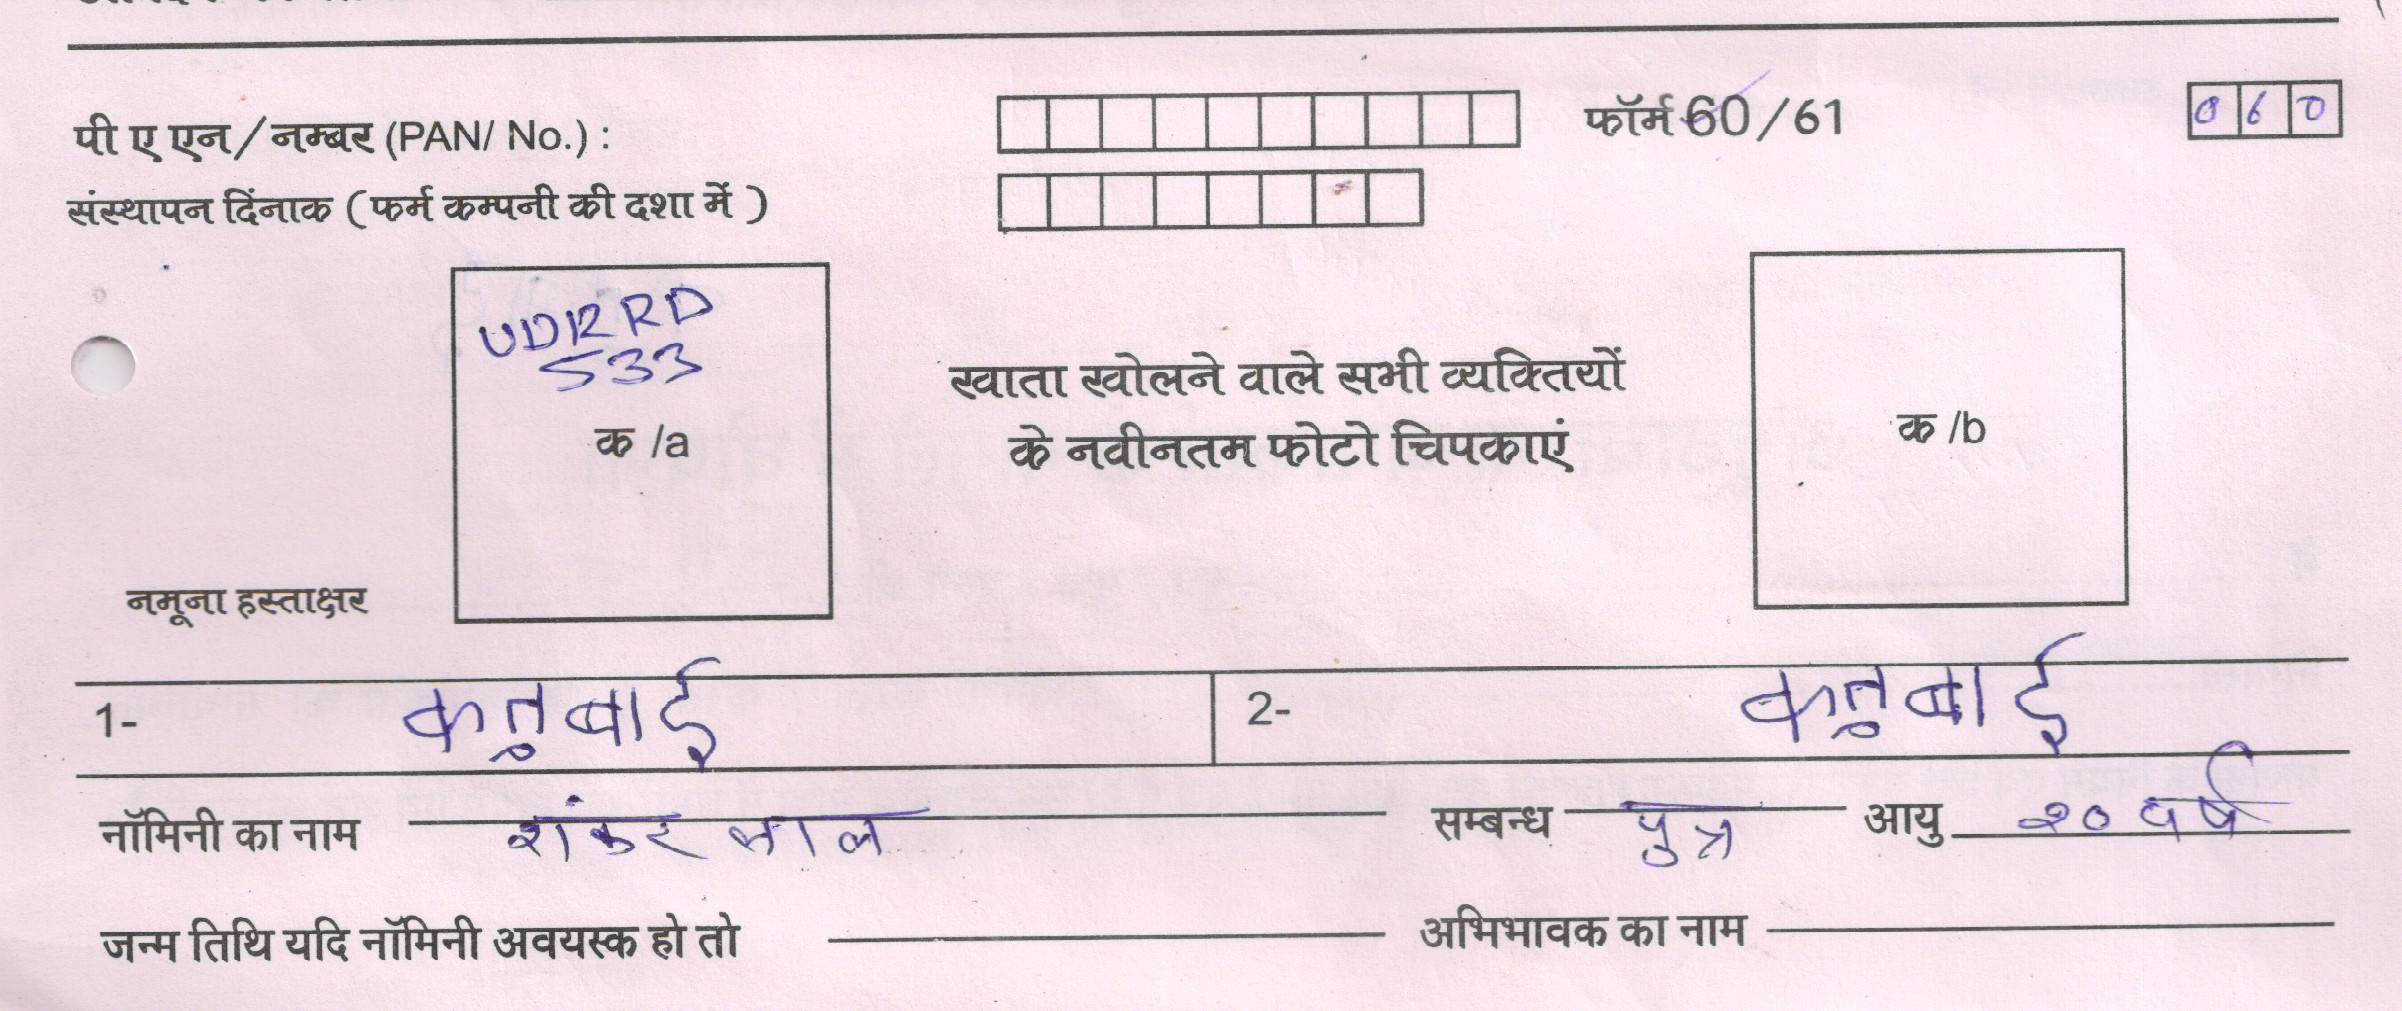 पी ए एन/नम्बर (PAN/ No.) : फॉर्म 60/61 060
संस्थापन दिंनाक ( फर्म कम्पनी की दशा में )
UDR RD
533
क /a
खाता खोलने वाले सभी व्यक्तियों
के नवीनतम फोटो चिपकाएं
क /b
नमूना हस्ताक्षर
1- कतुबाई 2- कतुबाई
नॉमिनी का नाम शंकर लाल सम्बन्ध पुत्र आयु २० वर्ष
जन्म तिथि यदि नॉमिनी अवयस्क हो तो अभिभावक का नाम